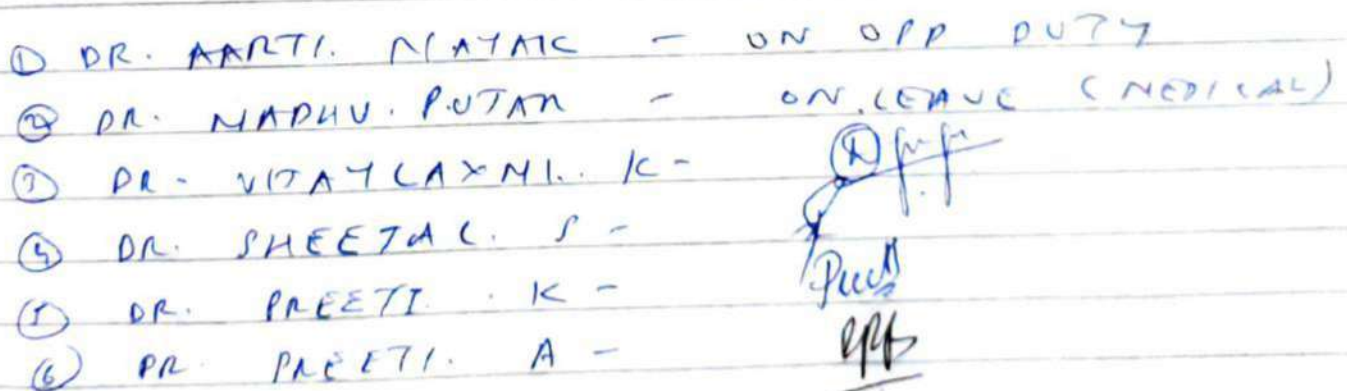 ① DR. AARTI. NAYAK - ON OPD DUTY
② DR. MADHU. PUJAR - ON LEAVE (MEDICAL)
③ DR. VIJAYLAXMI. K -
④ DR. SHEETAL. S -
⑤ DR. PREETI. K -
⑥ DR. PREETI. A -